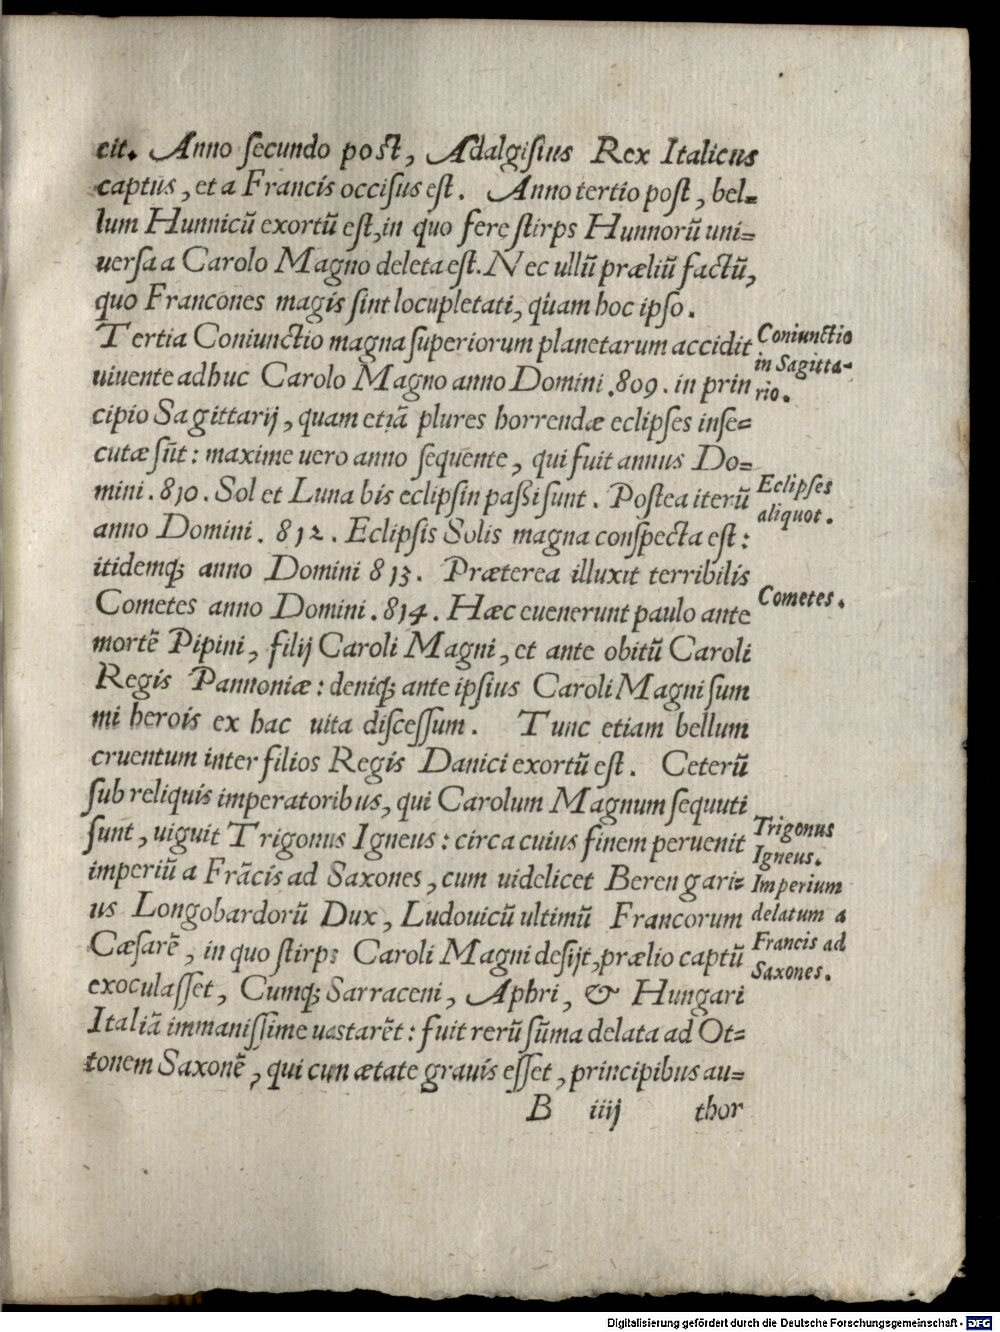 cit. Anno ſecundo poſt, Adalgiſius Rex Italicus
captus, et a Francis occiſus eſt. Anno tertio poſt, bel=
lum Hunnicũ exortũ eſt, in quo fere ſtirps Hunnorũ uni=
uerſa a Carolo Magno deleta eſt. Nec ullũ præliũ factũ,
quo Francones magis ſint locupletati, quam hoc ipſo.
Tertia Coniunctio magna ſuperiorum planetarum accidit
Coniunctio
in Sagitta-
rio.
uiuente adhuc Carolo Magno anno Domini .809. in prin
cipio Sagittarij, quam etiã plures horrendæ eclipſes inſe=
cutæ sũt: maxime uero anno ſequente, qui fuit annus Do=
mini .810. Sol et Luna bis eclipſin paßi ſunt. Poſtea iterũ
Eclipſes
aliquot.
anno Domini. 812. Eclipſis Solis magna conſpecta eſt:
itidemq; anno Domini 813. Præterea illuxit terribilis
Cometes anno Domini .814. Hæc euenerunt paulo ante
Cometes.
mortẽ Pipini, filij Caroli Magni, et ante obitũ Caroli
Regis Pannoniæ: deniq; ante ipſius Caroli Magni ſum
mi herois ex hac uita diſceſſum. Tunc etiam bellum
cruentum inter filios Regis Danici exortũ eſt. Ceterũ
ſub reliquis imperatoribus, qui Carolum Magnum ſequuti
ſunt, uiguit Trigonus Igneus: circa cuius finem peruenit
Trigonus
Igneus.
Imperium
delatum a
Francis ad
Saxones.
imperiũ a Frãcis ad Saxones, cum uidelicet Berengari=
us Longobardorũ Dux, Ludouicũ ultimũ Francorum
Cæſarẽ, in quo ſtirps Caroli Magni deſijt, prælio captũ
exoculaſſet, Cumq; Sarraceni, Aphri, & Hungari
Italiã immaniſſime uaſtarẽt: fuit rerũ ſũma delata ad Ot=
tonem Saxonẽ, qui cun ætate grauis eſſet, principibus au=
B iiij thor
Digitalisierung gefördert durch die Deutsche Forschungsgemeinschaft - DFG